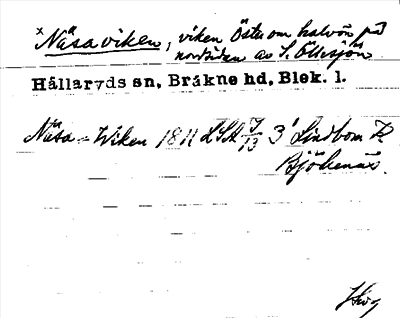 x Näsaviken, viken öster om halvön på
nordsidan av S. Öllesjön
Hällaryds sn, Bräkne hd, Blek. l.
Näsa-Wiken 1811 LSA 13 3 Lindbom
Björkenäs.